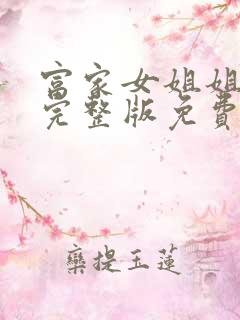 富家女姐姐
完整版免费
栾提玉莲